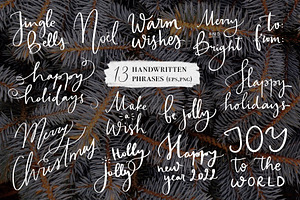 Jingle
Bells
Noel
Warm
wishes
Merry
AND
Bright
to:
from:
happy
holidays
13 HANDWRITTEN
PHRASES (EPS,PNG)
Happy
holidays
Make
a
Wish
be jolly
Merry
Christmas
Holly
Jolly
Happy
new
year 2022
JOY
to the
WORLD